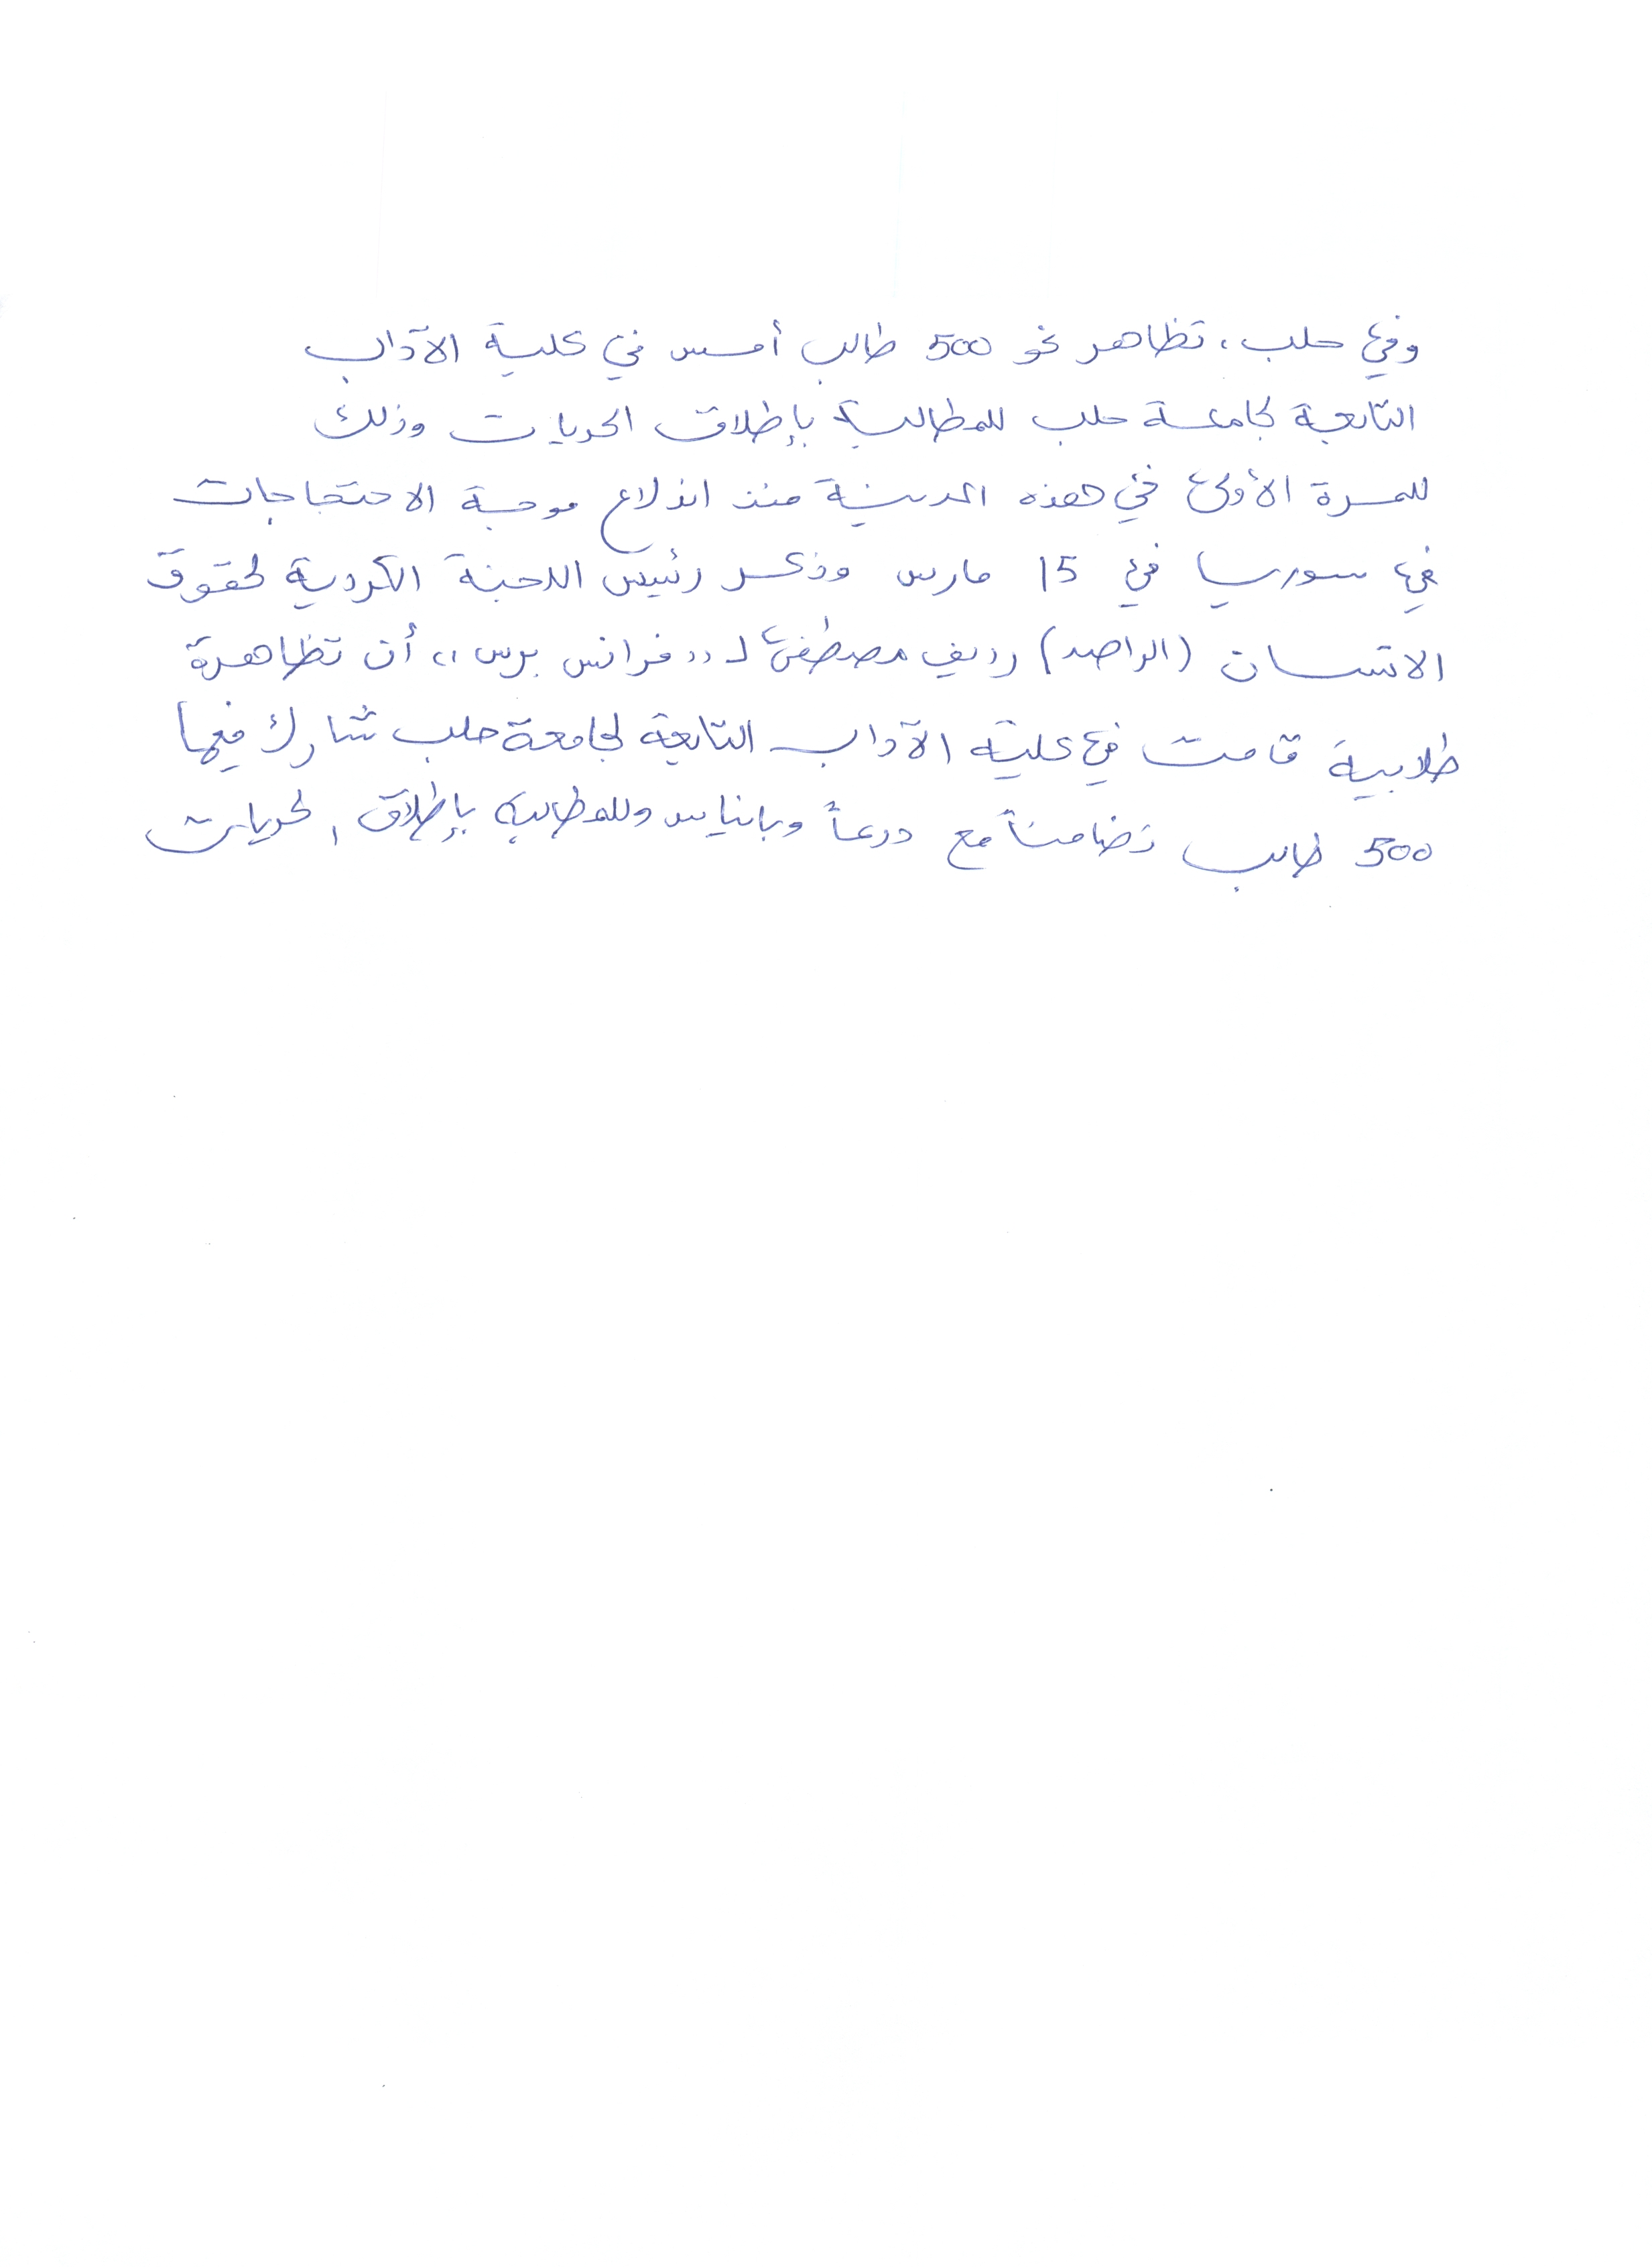 وفي حلب، تظاهر نحو 500 طالب أمس في كلية الآداب
التابعة لجامعة حلب للمطالبة بإطلاق الحريات وذلك
للمرة الأولى في هذه المدينة منذ اندلاع موجة الاحتجاجات
في سوريا في 15 مارس وذكر رئيس اللجنة الكردية لحقوق
الانسان (الراصد) رديف مصطفى لـ «فرانس برس»، أن تظاهرة
طلابية قامت في كلية الآداب التابعة لجامعة حلب شارك فيها
500 طالب تضامناً مع درعاً وبانياس وللمطالبة بإطلاق الحريات